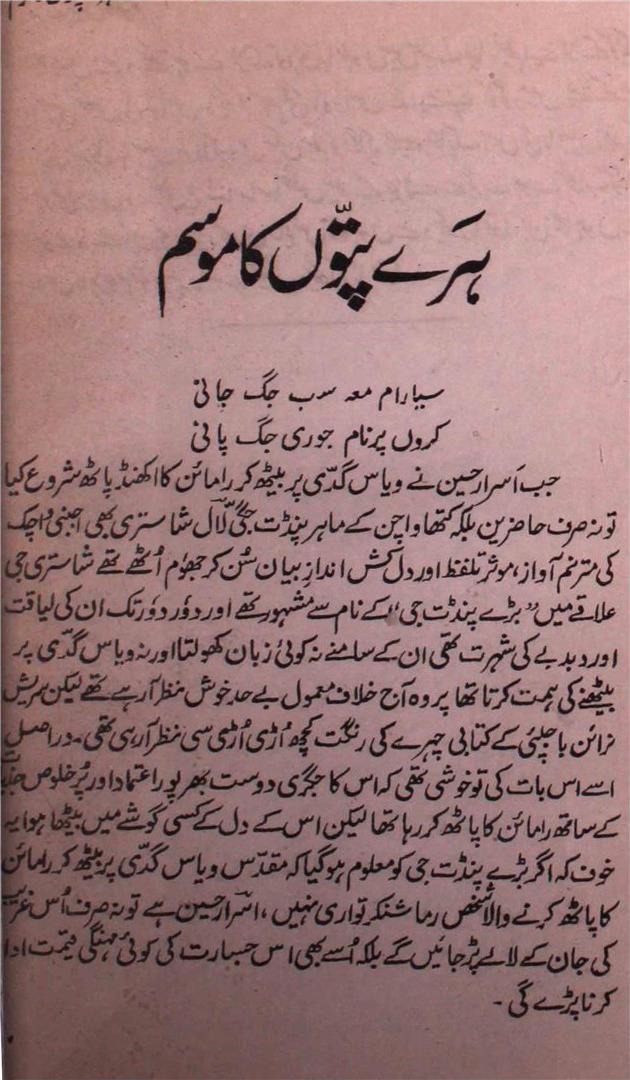 ہَرے پتّوں کا موسم
سیارام مے سب جگ جانی
کروں پرنام جوری جگ پانی
جب اَسرار حسین نے ویاس گدّی پر بیٹھ کر رامائن کا اکھنڈ پاٹھ شروع کیا
تو نہ صرف حاضرین بلکہ کتھا واچن کے ماہر پنڈت لال شاستری بھی اجنبی واچک
کی مترنم آواز، موثر تلفظ اور دل کش اندازِ بیان سُن کر جھوم اُٹھے تھے شاستری جی
علاقے میں ”بڑے پنڈت جی“ کے نام سے مشہور تھے اور دُور دُور تک ان کی لیاقت
اور دبدبے کی شہرت تھی ان کے سامنے نہ کوئی زبان کھولتا اور نہ ویاس گدّی پر
بیٹھنے کی ہمت کرتا تھا پر وہ آج خلاف معمول بے حد خوش نظر آرہے تھے لیکن سریش
نرائن باجپئی کے کتابی چہرے کی رنگت کچھ اُڑی اُڑی سی نظر آرہی تھی۔ دراصل
اسے اس بات کی تو خوشی تھی کہ اس کا جگری دوست بھرپور اعتماد اور پُرخلوص جذبے
کے ساتھ رامائن کا پاٹھ کر رہا تھا لیکن اس کے دل کے کسی گوشے میں بیٹھا ہوا یہ
خوف کہ اگر بڑے پنڈت جی کو معلوم ہو گیا کہ مقدّس ویاس گدّی پر بیٹھ کر رامائن
کا پاٹھ کرنے والا شخص رما شنکر تواری نہیں، اسرار حسین ہے تو نہ صرف اُس غریب
کی جان کے لالے پڑ جائیں گے بلکہ اُسے بھی اس جسارت کی کوئی مہنگی قیمت ادا
کرنا پڑے گی۔